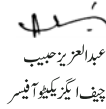 عبدالعزیز حبیب
چیف ایگزیکیٹو آفیسر